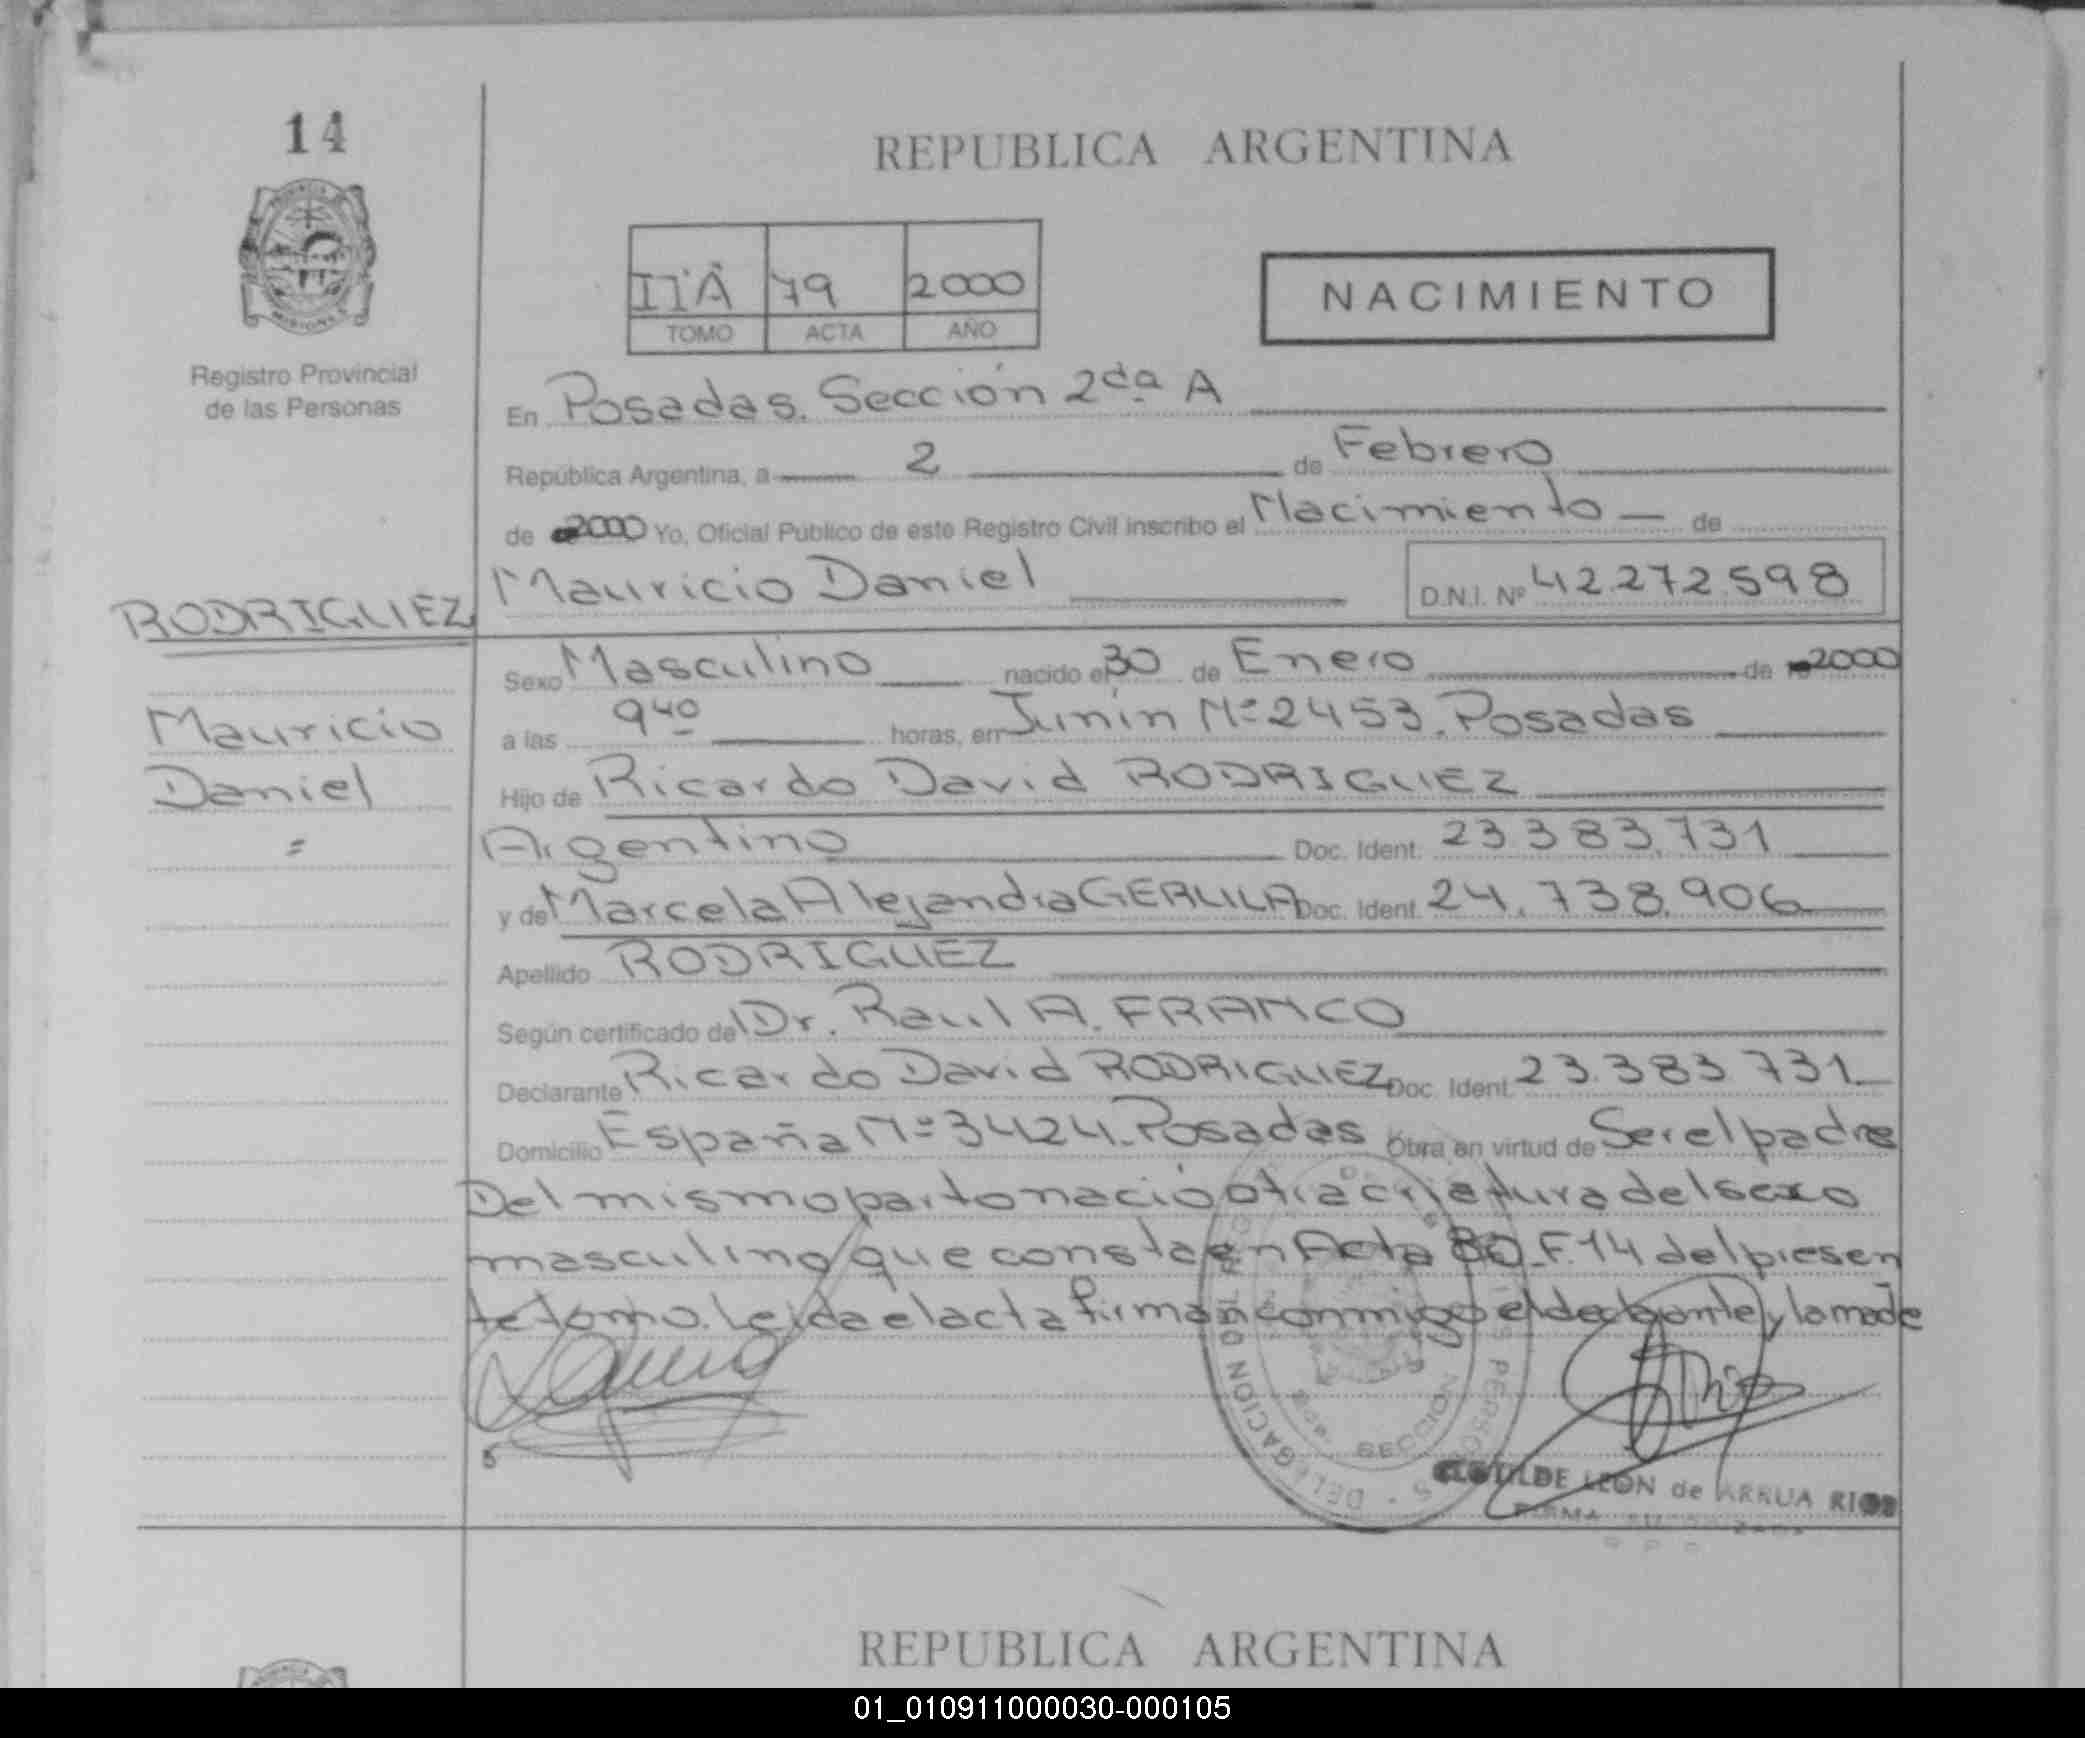 14
REPUBLICA ARGENTINA
MISIONES
Registro Provincial
de las Personas
IIºA 79 2000
TOMO ACTA AÑO
NACIMIENTO
En Posadas. Sección 2da A
República Argentina, a 2 de Febrero
de 2000 Yo, Oficial Público de este Registro Civil inscribo el Nacimiento de
Mauricio Daniel D.N.I. Nº 42.272.598
RODRIGUEZ
Mauricio
Daniel
Sexo Masculino nacido el 30 de Enero de 2000
a las 9 40 horas, en Junín Nº 2453. Posadas
Hijo de Ricardo David RODRIGUEZ
Argentino Doc. Ident. 23.383.731
y de Marcela Alejandra Doc. Ident. 24.738.906
Apellido RODRIGUEZ
Según certificado de Dr. Raul A. FRANCO
Declarante Ricardo David RODRIGUEZ Doc. Ident. 23.383.731
Domicilio España Nº 3424. Posadas Obra en virtud de Ser el padre
Del mismo parto nació otra criatura del sexo
masculino que consta en Acta 80 F. 14 del presen
te tomo. Leída el acta firman conmigo el declarante y la madre
DELEGACION
SECCION
CLOTILDE LEON de ARRUA RIOS
REPUBLICA ARGENTINA
01_010911000030-000105